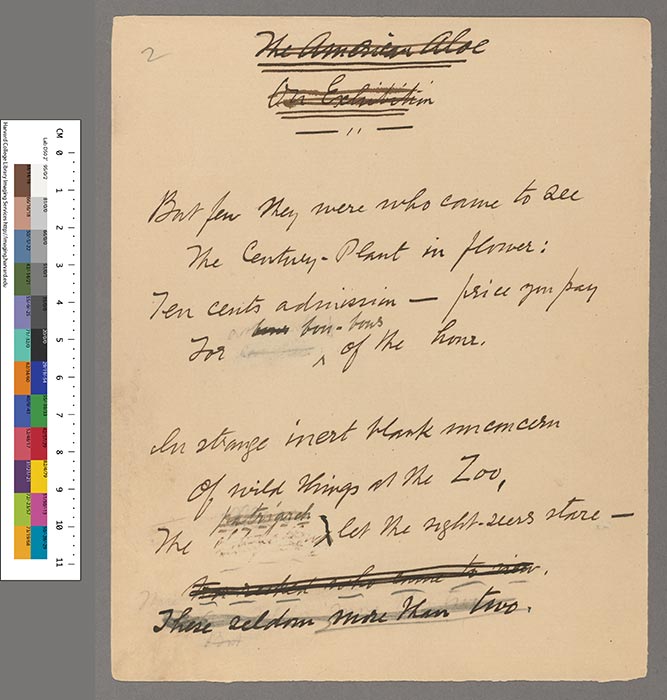 2
The American Aloe
On Exhibition
But few they were who came to see
The Century-Plant in flower:
Ten cents admission — price you pay
bon-bons
For of the hour.
In strange inert blank unconcern
Of wild things at the Zoo,
patriarch
The let the sight-seers stare —
who came to view.
These seldom more than two.
CM 0 1 2 3 4 5 6 7 8 9 10 11
Harvard College Library Imaging Services http://imaging.harvard.edu